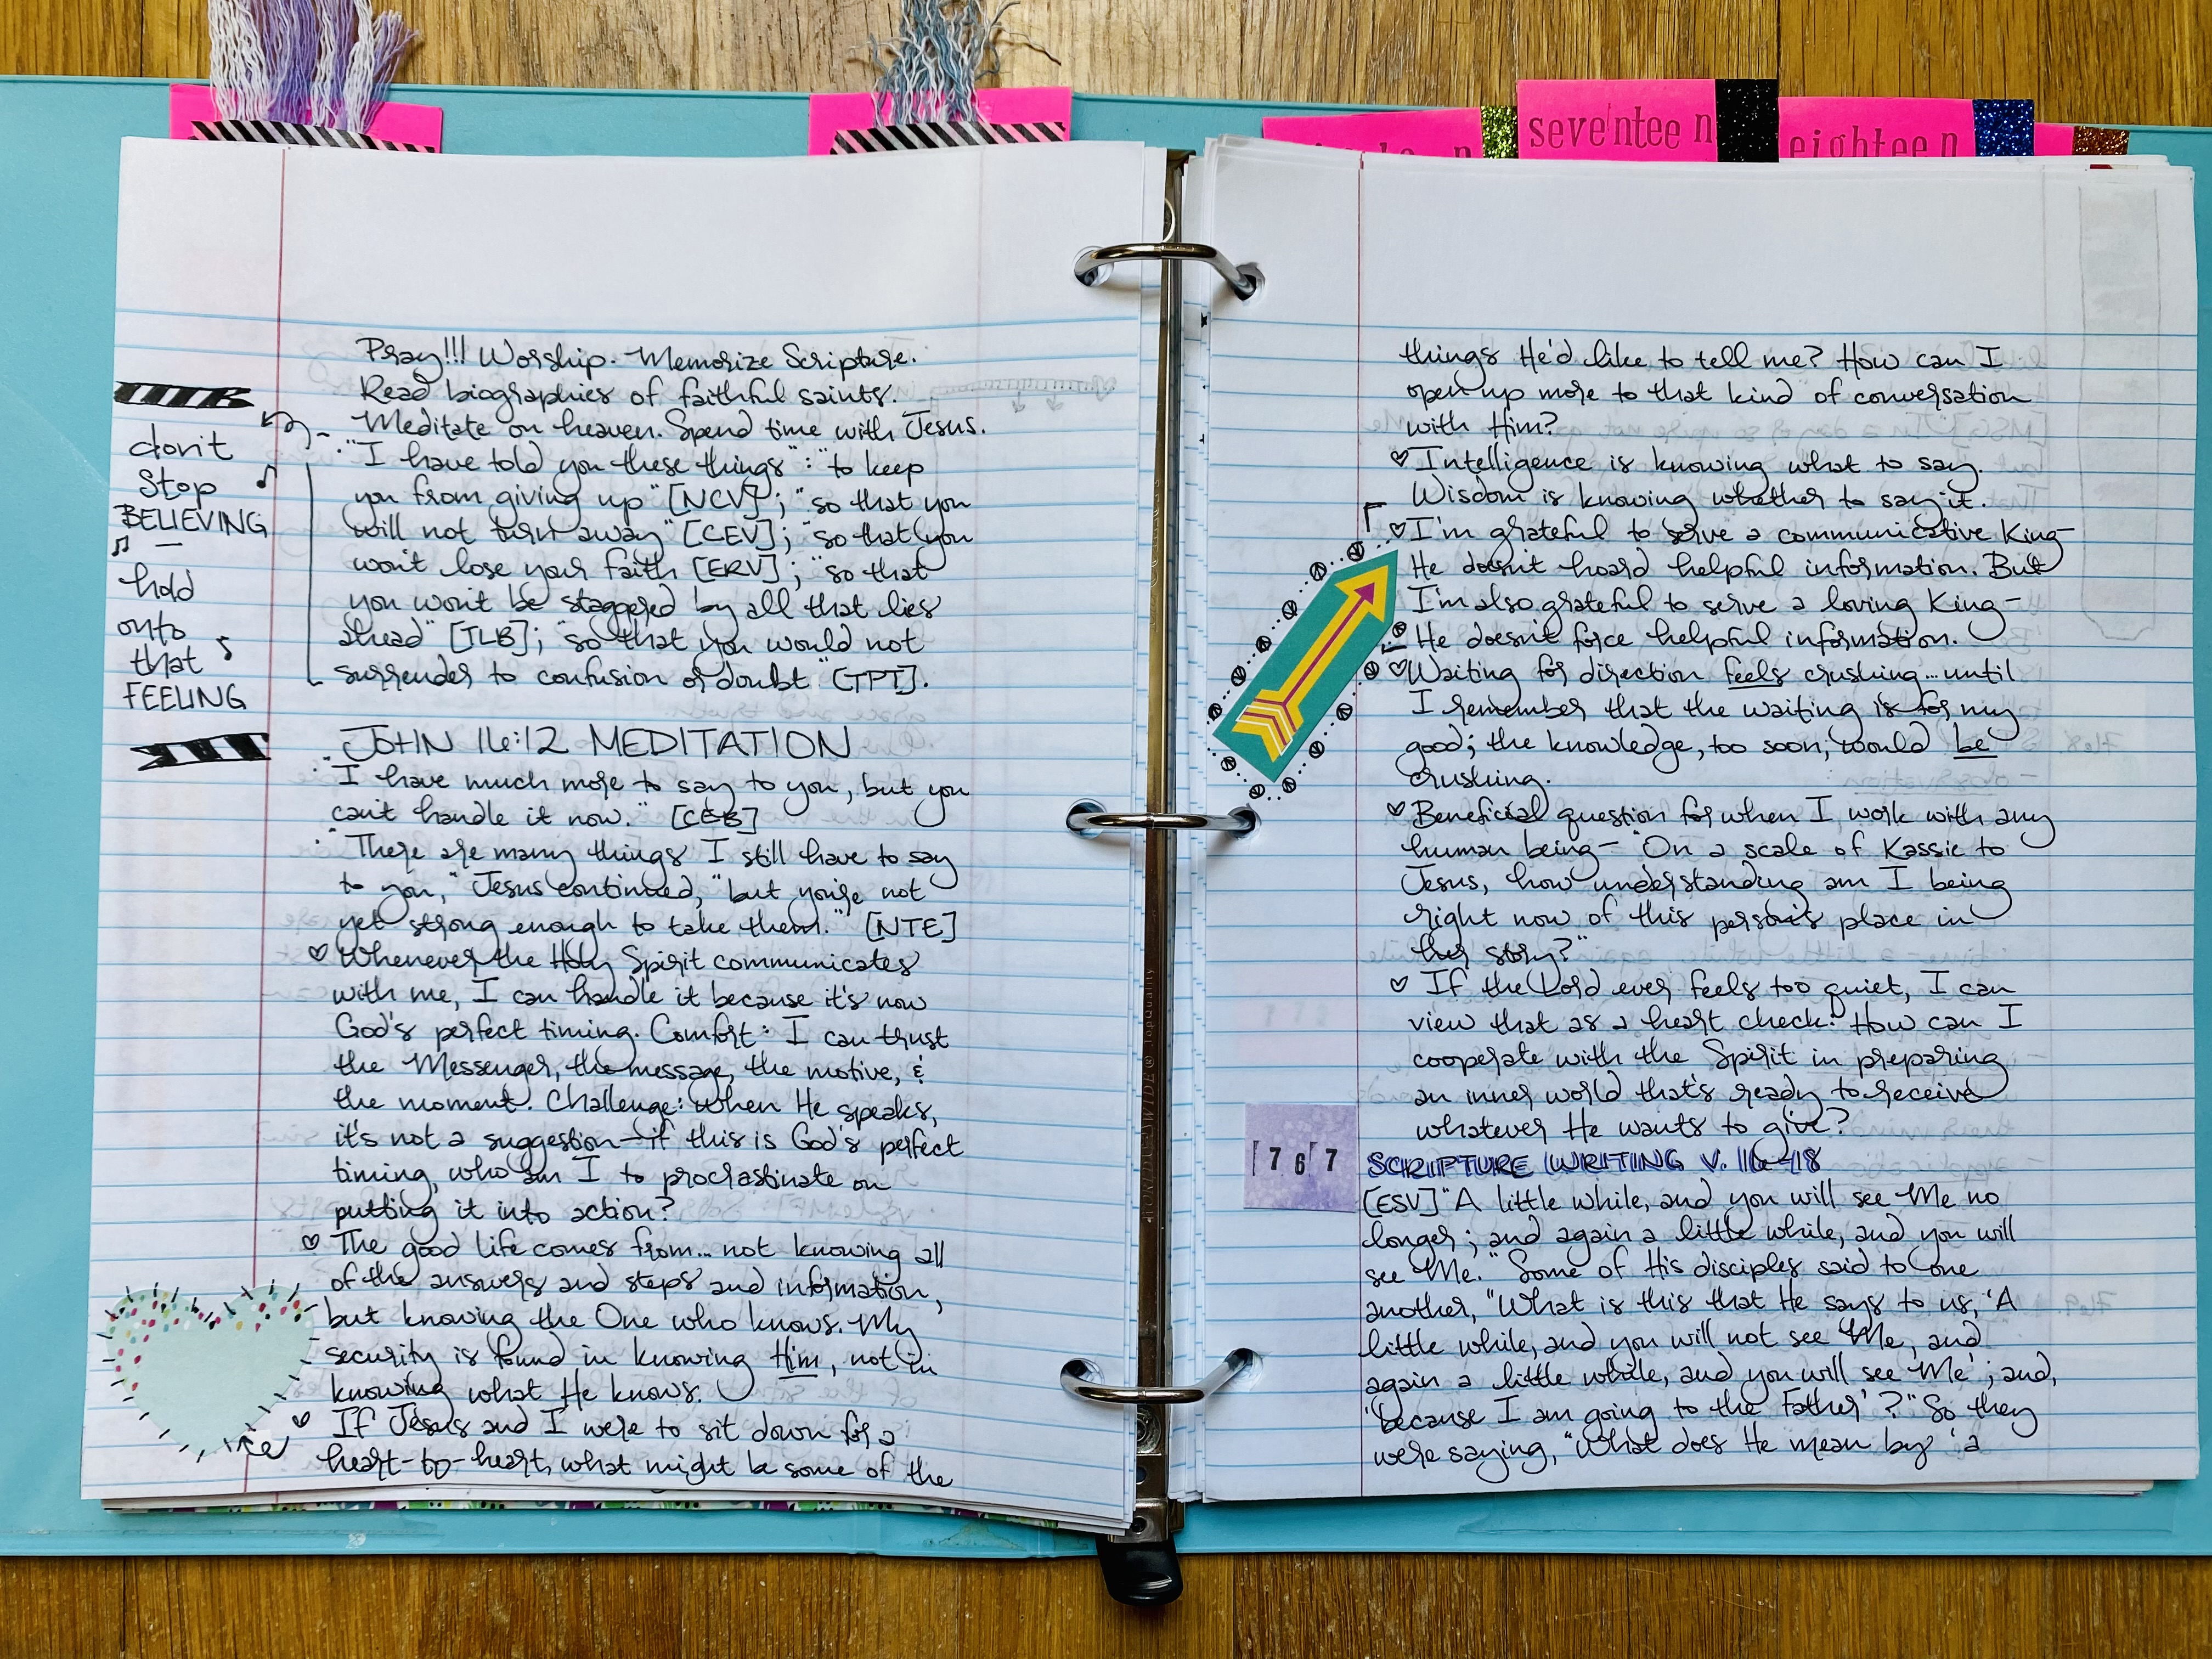 seventeen
eighteen
Pray!!! Worship. Memorize Scripture.
Read biographies of faithful saints.
Meditate on heaven. Spend time with Jesus.
"I have told you these things": "to keep
you from giving up" [NCV]; "so that you
will not turn away" [CEV]; "so that you
won't lose your faith [ERV]; "so that
you won't be staggered by all that lies
ahead" [TLB]; "so that you would not
surrender to confusion or doubt" [TPT].
don't
stop
BELIEVING
hold
onto
that
FEELING
JOHN 16:12 MEDITATION
"I have much more to say to you, but you
can't handle it now." [CEB]
"There are many things I still have to say
to you," Jesus continued, "but you're not
yet strong enough to take them." [NTE]
♡ Whenever the Holy Spirit communicates
with me, I can handle it because it's now
God's perfect timing. Comfort: I can trust
the Messenger, the message, the motive, &
the moment. Challenge: when He speaks,
it's not a suggestion—if this is God's perfect
timing, who am I to procrastinate on
putting it into action?
♡ The good life comes from... not knowing all
of the answers and steps and information,
but knowing the One who knows. My
security is found in knowing Him, not in
knowing what He knows.
♡ If Jesus and I were to sit down for a
heart-to-heart, what might be some of the
things He'd like to tell me? How can I
open up more to that kind of conversation
with Him?
♡ Intelligence is knowing what to say.
Wisdom is knowing whether to say it.
♡ I'm grateful to serve a communicative King—
He doesn't hoard helpful information. But
I'm also grateful to serve a loving King—
He doesn't force helpful information.
♡ Waiting for direction feels crushing... until
I remember that the waiting is for my
good; the knowledge, too soon, would be
crushing.
♡ Beneficial question for when I work with any
human being— "On a scale of Kassie to
Jesus, how understanding am I being
right now of this person's place in
their story?"
♡ If the Lord ever feels too quiet, I can
view that as a heart check: How can I
cooperate with the Spirit in preparing
an inner world that's ready to receive
whatever He wants to give?
767
SCRIPTURE WRITING V. 16-18
[ESV] "A little while, and you will see Me no
longer; and again a little while, and you will
see Me." Some of His disciples said to one
another, "What is this that He says to us, 'A
little while, and you will not see Me, and
again a little while, and you will see Me'; and,
'because I am going to the Father'?" So they
were saying, "What does He mean by 'a